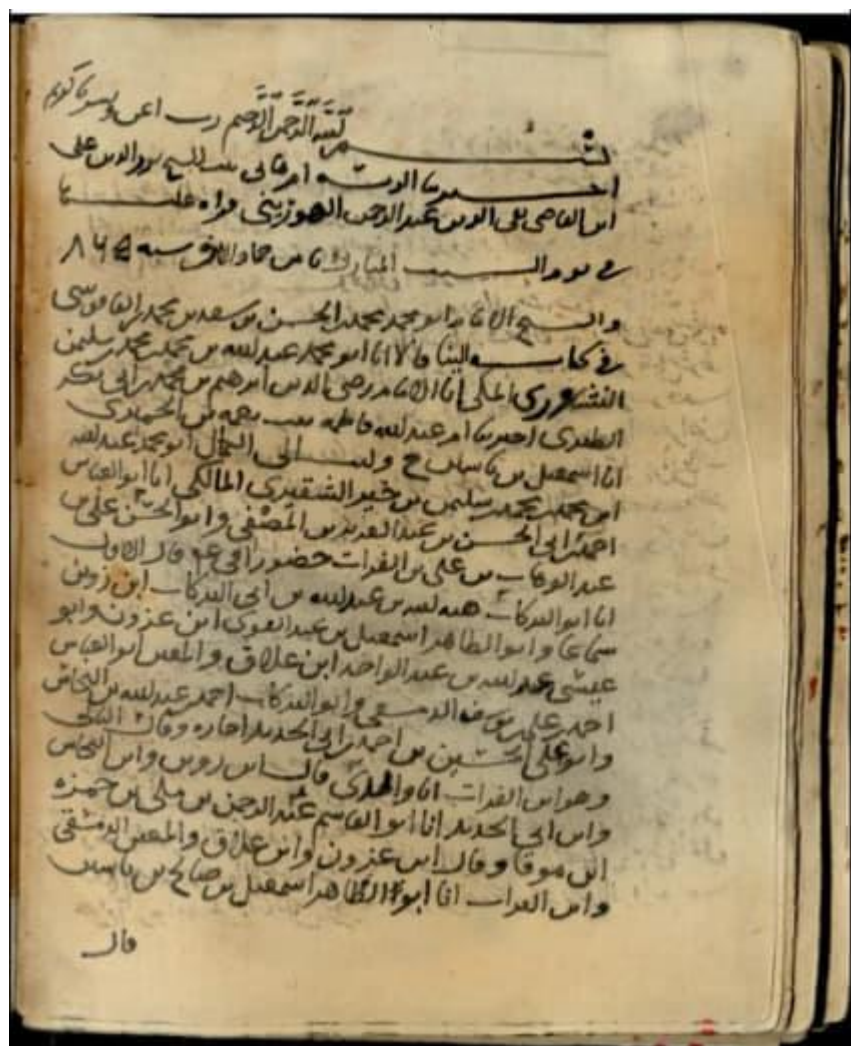 بسم الله الرحمن الرحيم رب اعن ويسر يا كريم
اخبرتنا ام هاني بنت الشيخ نور الدين على
ابن القاضي تقي الدين عبد الرحمن الهوريني قراه عليها
في يوم السبت المبارك ثامن جماد الاخر سنه
والشيخ الامام ابو محمد محمد بن الحسن بن سعد بن محمد القاهرى
في كتابه الينا قالا انا ابو محمد عبد الله بن محمد بن محمد بن سليمن
النشاورى المكى انا الامام رضى الدين ابرهيم بن محمد بن ابى بكر
الطبرى اخبرتنا ام عبد الله فاطمه بنت نعمه بن
انا اسمعيل بن ياسين ح الجمال ابو محمد عبد الله
ابن محمد بن محمد بن سليمن بن خير المالكى انا ابو العباس
احمد بن ابى الحسن بن عبد الكريم بن المصفى وابو الحسن على بن
عبد الوهاب بن على بن الفرات حضورا فى قال الاول
انا ابو البركات هبه الله بن عبد الله بن ابى البركات ابن زوين
سماعا وابو الطاهر اسمعيل بن عبد القوى ابن عزون وابو
عيسى عبد الله بن عبد الواحد ابن علاق والمعين ابو العباس
احمد بن على بن يوسف الدمشقى وابو البركات احمد بن عبد الله بن النحاس
وابو على الحسين بن احمد بن ابى الحديد اجازه وقال الثانى
وهو ابن الفرات انا والدى قال ابن زوين وابن النحاس
وابن ابى الحديد انا ابو القاسم عبد الرحمن بن مكى بن حمزه
ابن موقا وقال ابن عزون وابن علاق والمعين الدمشقى
وابن الفرات انا ابو الطاهر اسمعيل بن صالح بن ياسين
قال